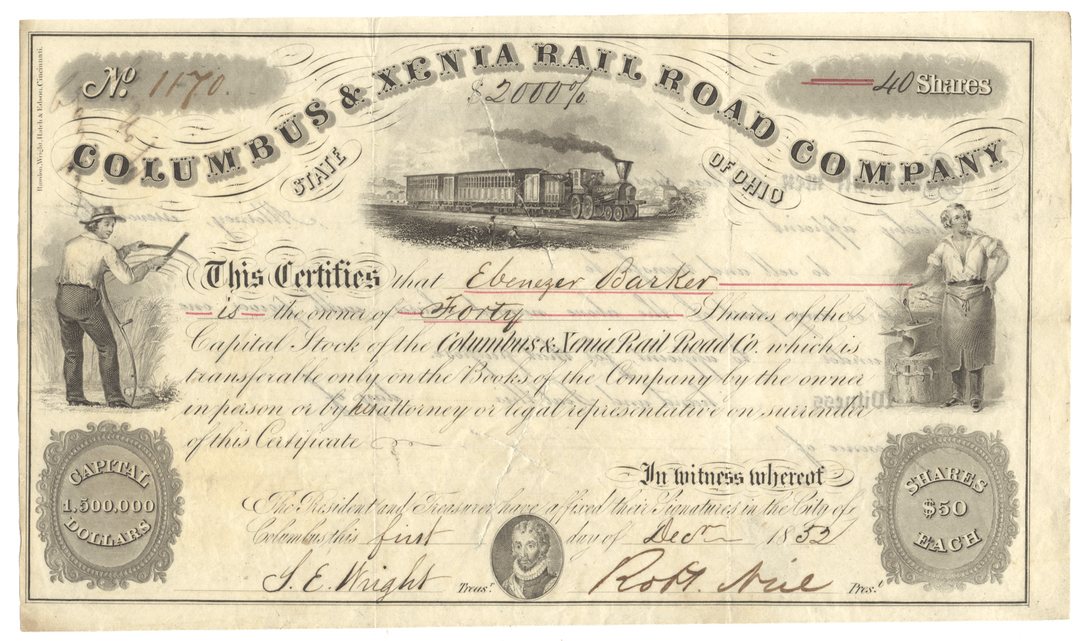 Nº 1170.
40 Shares
COLUMBUS & XENIA RAIL ROAD COMPANY
$2000%
STATE OF OHIO
This Certifies that Ebenezer Barker
is the owner of Forty Shares of the
Capital Stock of the Columbus & Xenia Rail Road Co. which is
transferable only on the Books of the Company by the owner
in person or by his attorney or legal representative on surrender
of this Certificate
In witness whereof
The President and Treasurer have affixed their Signatures in the City of
Columbus this first day of Decr 1852
S. E. Wright Treasr.
Robt. Neil Prest.
CAPITAL
1,500,000
DOLLARS
SHARES
$50
EACH
Rawdon, Wright, Hatch & Edson, Cincinnati.